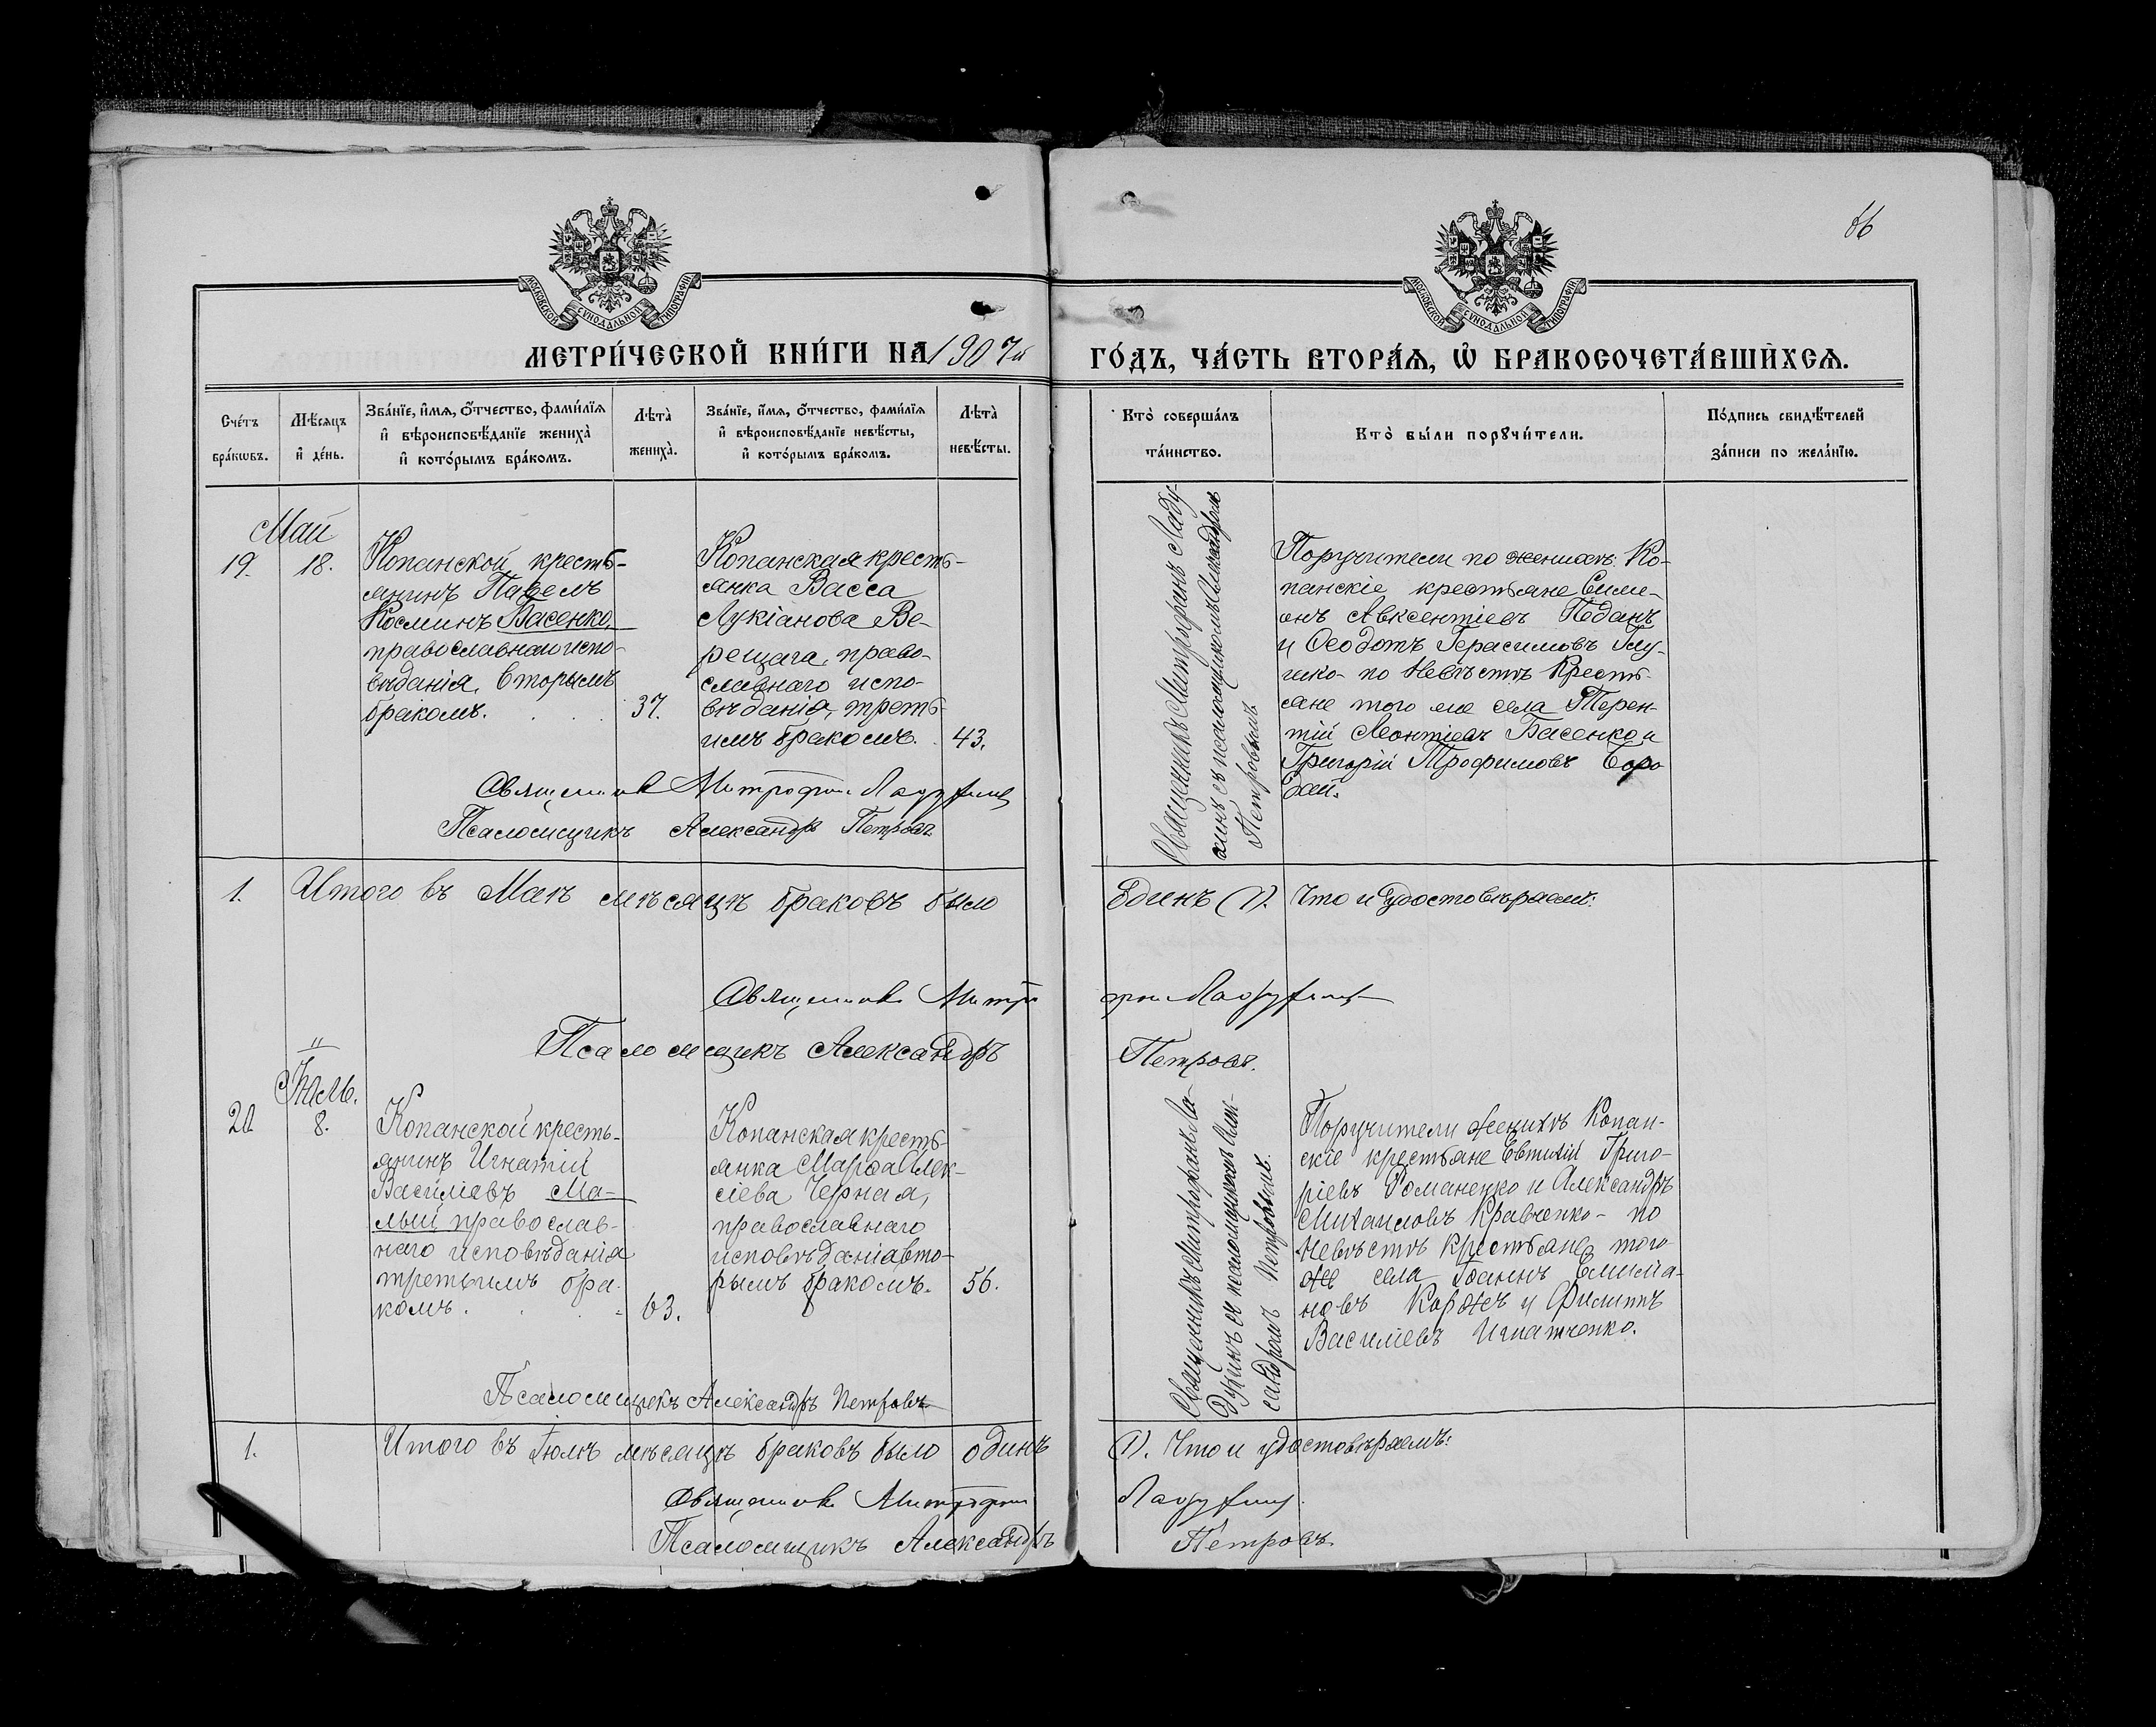 66
МОСКОВСКОЙ СУНОДАЛЬНОЙ ТИПОГРАФІИ
МОСКОВСКОЙ СУНОДАЛЬНОЙ ТИПОГРАФІИ
МЕТРИ́ЧЕСКОЙ КНИ́ГИ НА 1907й ГО́ДЪ, ЧА́СТЬ ВТОРА́Я, Ѡ БРАКОСОЧЕТА́ВШИХСЯ.
Сче́тъ
бра́кѡвъ.
Мѣ́сяцъ
и҆ де́нь.
Зва́нїе, и҆́мя, ѻ҆́тчество, фами́лїя
и҆ вѣроисповѣ́данїе жениха̀
и҆ кото́рымъ бра́комъ.
Лѣта̀
жениха̀.
Зва́нїе, и҆́мя, ѻ҆́тчество, фами́лїя
и҆ вѣроисповѣ́данїе невѣ́сты,
и҆ кото́рымъ бра́комъ.
Лѣта̀
невѣ́сты.
Кто̀ соверша́лъ
та́инство.
Кто̀ бы́ли порꙋчи́тели.
По́дпись свидѣ́телей
за́писи по жела́нїю.
Май
19.
18.
Копанской кресть-
янинъ Павелъ
Косминъ Васенко,
православнаго испо-
вѣданія, вторымъ
бракомъ.
37.
Копанская кресть-
янка Васса
Лукіанова Ве-
рещага, право-
славнаго испо-
вѣданія, треть-
имъ бракомъ.
43.
Священникъ Митрофанъ Ладу-
хинъ съ псаломщикомъ Александромъ
Петровымъ
Поручители по женихѣ: Ко-
панскіе крестьяне Симе-
онъ Авксентіевъ Педанъ
и Ѳеодотъ Герасимовъ Глу-
шко - по невѣстѣ кресть-
яне того же села Терен-
тій Леонтіевъ Басенко и
Григорій Трофимовъ Боро
дай.
Священникъ Митрофанъ Ладухинъ
Псаломщикъ Александръ Петровъ
1.
Итого въ Маѣ мѣсяцѣ браковъ было одинъ (1). Что и удостовѣряемъ:
Священникъ Митрофанъ Ладухинъ
Псаломщикъ Александръ Петровъ.
Іюль.
20
8.
Копанской кресть-
янинъ Игнатій
Василіевъ Ма-
лый православ-
наго исповѣданія
третьимъ бра-
комъ.
63.
Копанская кресть-
янка Марѳа Алек-
сіева Черная,
православнаго
исповѣданія вто-
рымъ бракомъ.
56.
Священникъ Митрофанъ Ла-
духинъ съ псаломщикомъ Алек-
сандромъ Петровымъ.
Поручители женихѣ Копан-
скіе крестьяне Евтихій Григо-
ріевъ Романенко и Александръ
Михаиловъ Кравченко - по
невѣстѣ крестьяне того
же села Іоаннъ Емилiа-
новъ Коржъ и Филиппъ
Василіевъ Игнатченко.
Псаломщикъ Александръ Петровъ
1.
Итого въ Іюлѣ мѣсяцѣ браковъ было одинъ (1). Что и удостовѣряемъ:
Священникъ Митрофанъ Ладухинъ.
Псаломщикъ Александръ Петровъ.